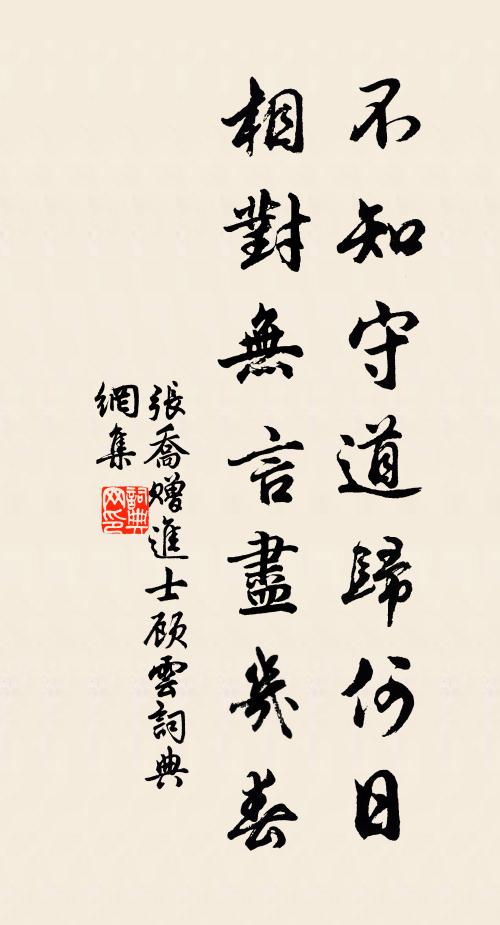 不知守道歸何日
相對無言盡幾春
張喬贈進士顾雲詞典
網集
詞典
网印